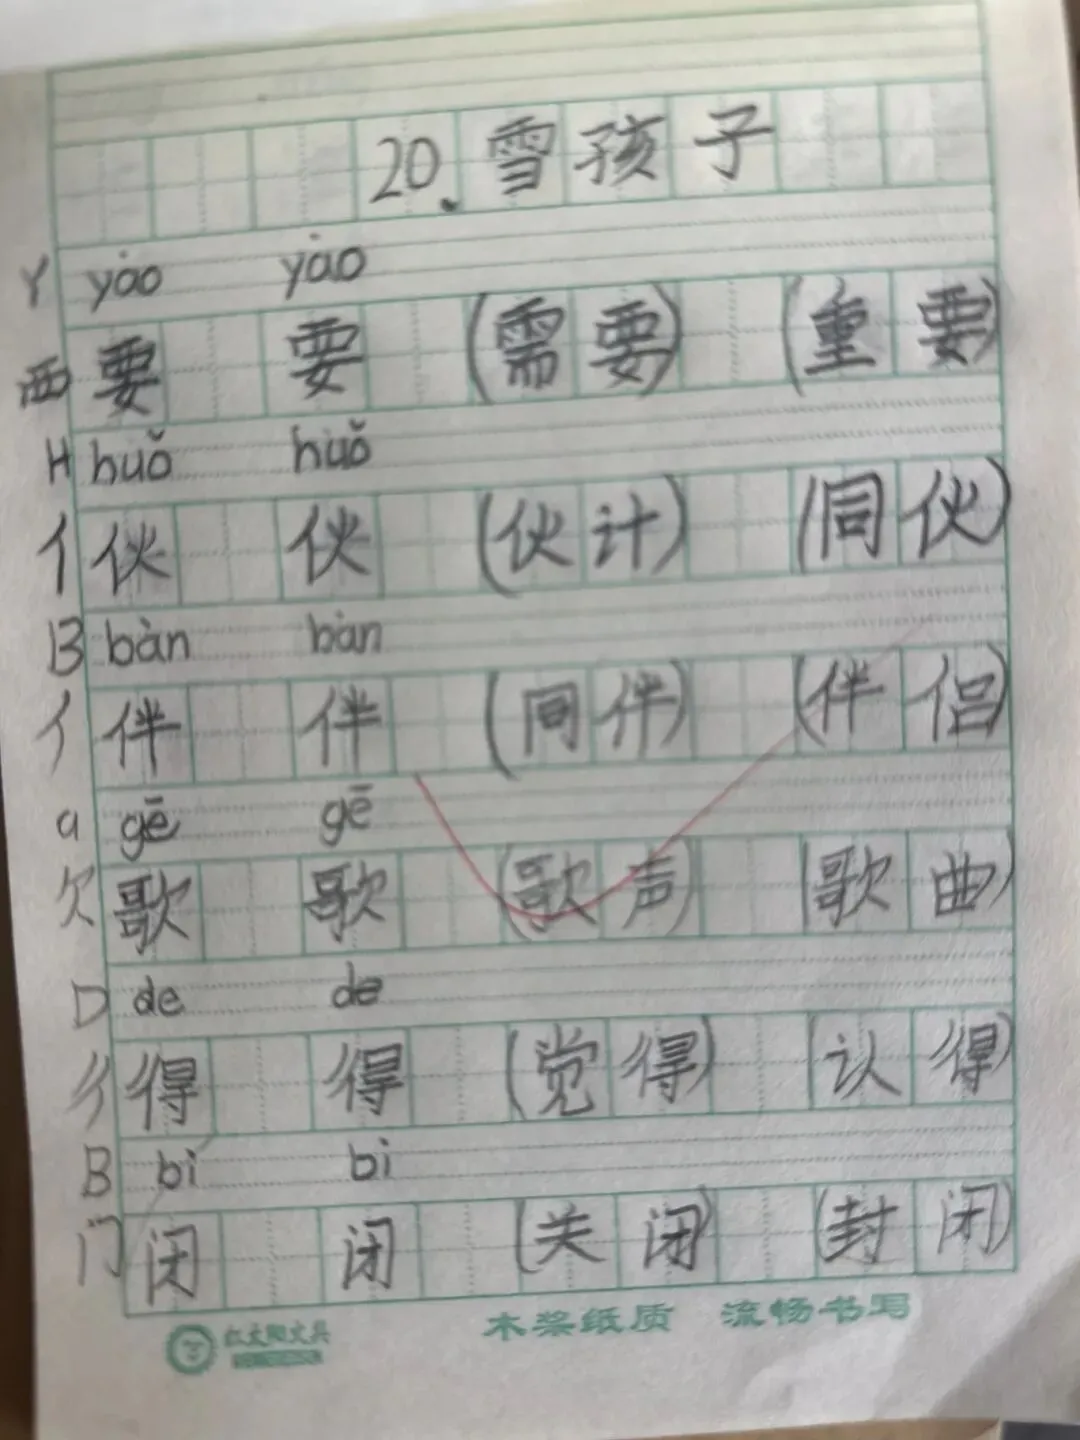 20. 雪孩子
Y yào yào
西 要 要 (需要) (重要)
H huǒ huǒ
亻 伙 伙 (伙计) (同伙)
B bàn bàn
亻 伴 伴 (同伴) (伴侣)
gē gē
欠 歌 歌 (歌声) (歌曲)
D de de
彳 得 得 (觉得) (认得)
B bì bì
门 闭 闭 (关闭) (封闭)
木浆纸质 流畅书写